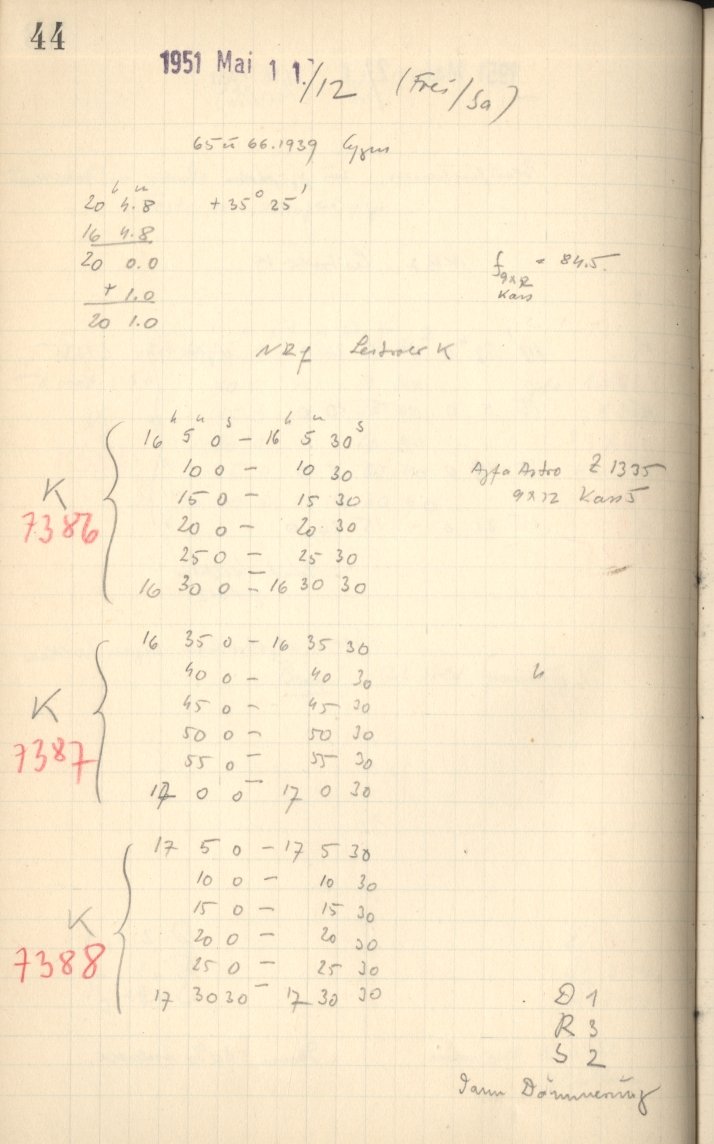 44
1951 Mai 11./12 (Frei/Sa)
65 u 66.1939 Cygni
h m
20 4.8 +35° 25'
16 4.8
20 0.0
+ 1.0
20 1.0
f = 84.5.
9x12
Kass
h m s h m s
16 5 0 - 16 5 30
10 0 - 10 30
15 0 - 15 30
20 0 - 20 30
25 0 - 25 30
16 30 0 - 16 30 30
K
7386
Agfa Astro Z 1335
9x12 Kass 5
16 35 0 - 16 35 30
40 0 - 40 30
45 0 - 45 30
50 0 - 50 30
55 0 - 55 30
17 0 0 - 17 0 30
K
7387
17 5 0 - 17 5 30
10 0 - 10 30
15 0 - 15 30
20 0 - 20 30
25 0 - 25 30
17 30 30 - 17 30 30
K
7388
D 1
R 3
S 2
dann Dämmerung